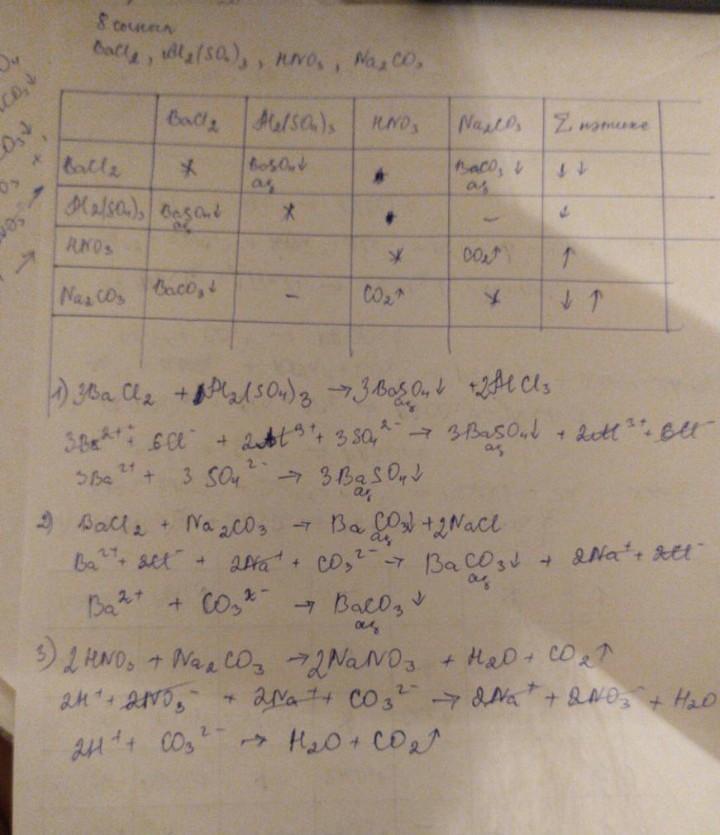 BaCl₂, Al₂(SO₄)₃, HNO₃, Na₂CO₃
BaCl₂ Al₂(SO₄)₃ HNO₃ Na₂CO₃ Σ
BaCl₂ * BaSO₄↓ BaCO₃↓ ↓↓
Al₂(SO₄)₃ BaSO₄↓ * — ↓
HNO₃ * CO₂↑ ↑
Na₂CO₃ BaCO₃↓ — CO₂↑ * ↓↑
1) 3BaCl₂ + Al₂(SO₄)₃ → 3BaSO₄↓ + 2AlCl₃
3Ba²⁺ + 6Cl⁻ + 2Al³⁺ + 3SO₄²⁻ → 3BaSO₄↓ + 2Al³⁺ + 6Cl⁻
3Ba²⁺ + 3SO₄²⁻ → 3BaSO₄↓
2) BaCl₂ + Na₂CO₃ → BaCO₃↓ + 2NaCl
Ba²⁺ + 2Cl⁻ + 2Na⁺ + CO₃²⁻ → BaCO₃↓ + 2Na⁺ + 2Cl⁻
Ba²⁺ + CO₃²⁻ → BaCO₃↓
3) 2HNO₃ + Na₂CO₃ → 2NaNO₃ + H₂O + CO₂↑
2H⁺ + 2NO₃⁻ + 2Na⁺ + CO₃²⁻ → 2Na⁺ + 2NO₃⁻ + H₂O
2H⁺ + CO₃²⁻ → H₂O + CO₂↑